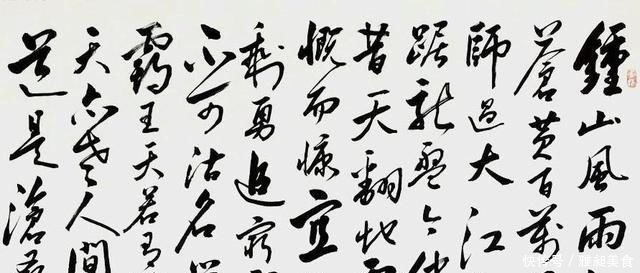 鍾山風雨
蒼黃百萬
師過大江
踞龍盤今勝
昔天翻地覆
慨而慷宜
剩勇追窮
不可沽名學
霸王天若有
天亦老人間
道是滄桑
快传号 / 雅昶美食